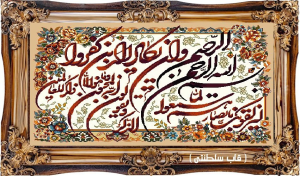 بسم الله الرحمن الرحیم وان یکاد الذین کفروا
لیزلقونک بابصارهم لما سمعوا
الذکر ویقولون انه لمجنون وما هو الا ذکر للعالمین
( قاب سلطنتی )